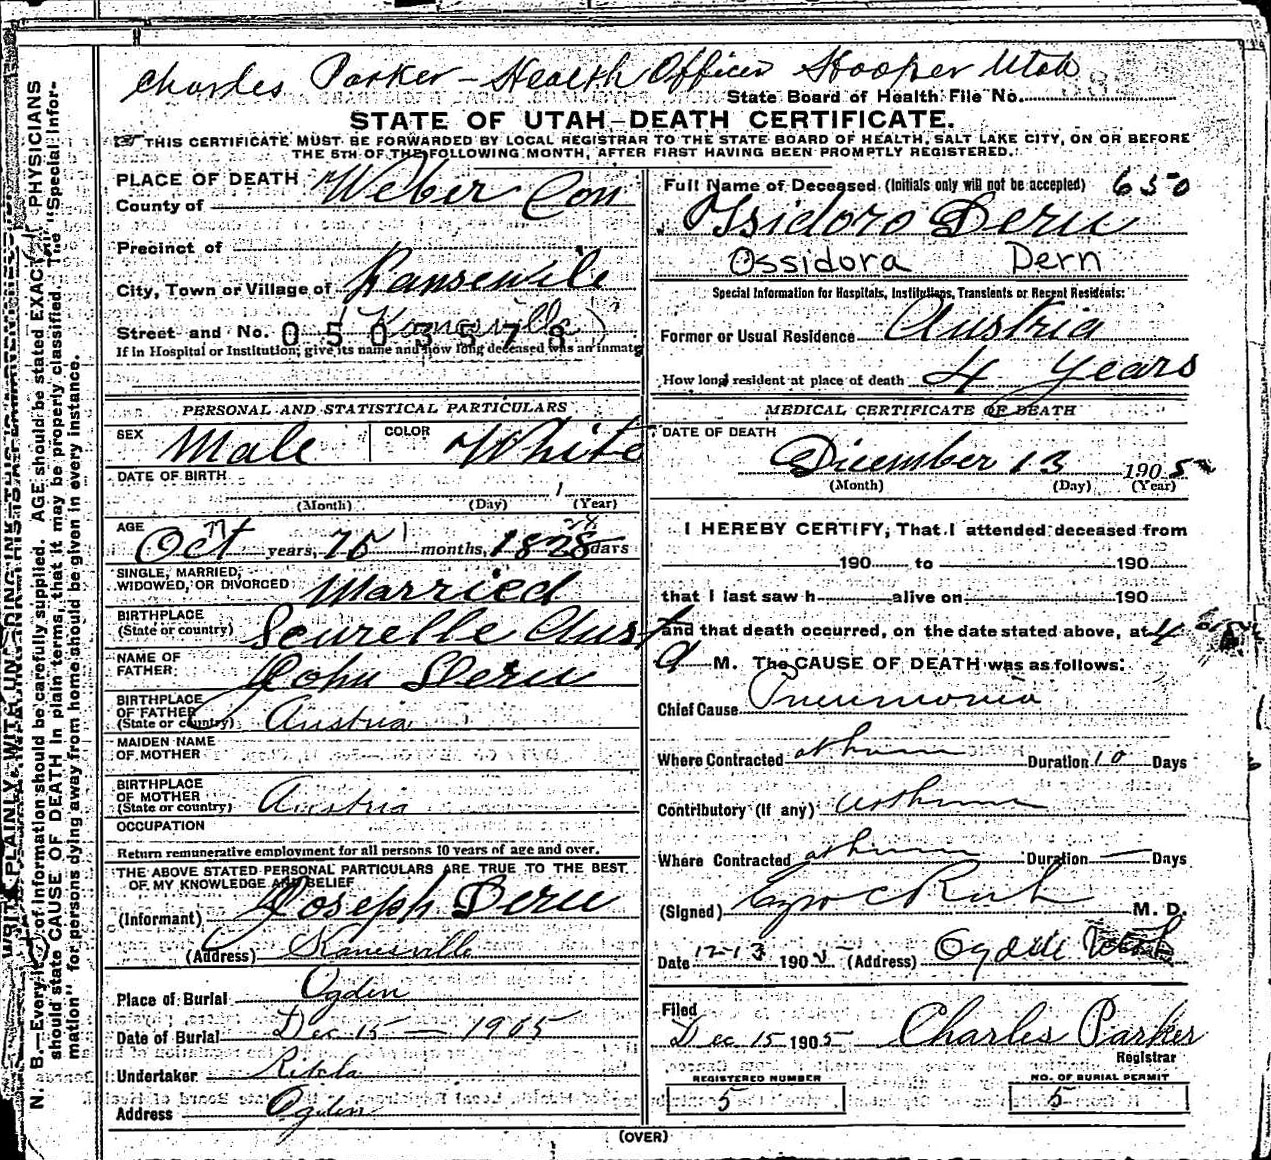 Charles Parker - Health Officer Hooper Utah
State Board of Health File No.
STATE OF UTAH-DEATH CERTIFICATE.
THIS CERTIFICATE MUST BE FORWARDED BY LOCAL REGISTRAR TO THE STATE BOARD OF HEALTH, SALT LAKE CITY, ON OR BEFORE
THE 5TH OF THE FOLLOWING MONTH, AFTER FIRST HAVING BEEN PROMPTLY REGISTERED.
PLACE OF DEATH
County of Weber Con
Precinct of
City, Town or Village of Kansevile
(Kanesville)
Street and No. 0503578
If in Hospital or Institution, give its name and how long deceased was an inmate
PERSONAL AND STATISTICAL PARTICULARS
SEX Male COLOR White
DATE OF BIRTH
(Month) (Day) (Year)
AGE Oct years, 75 months, 1828 days
SINGLE, MARRIED, WIDOWED, OR DIVORCED Married
BIRTHPLACE
(State or country) Scurelle Aust
NAME OF FATHER John Deru
BIRTHPLACE
OF FATHER
(State or country) Austria
MAIDEN NAME
OF MOTHER
BIRTHPLACE
OF MOTHER
(State or country) Austria
OCCUPATION
Return remunerative employment for all persons 10 years of age and over.
THE ABOVE STATED PERSONAL PARTICULARS ARE TRUE TO THE BEST
OF MY KNOWLEDGE AND BELIEF
(Informant) Joseph Deru
(Address) Kanesville
Place of Burial Ogden
Date of Burial Dec 15 - 1905
Undertaker
Address Ogden
Full Name of Deceased (Initials only will not be accepted) 650
Ossidoro Deru
Ossidora Dern
Special Information for Hospitals, Institutions, Transients or Recent Residents:
Former or Usual Residence Austria
How long resident at place of death 4 years
MEDICAL CERTIFICATE OF DEATH
DATE OF DEATH
Dicember 13 1905
(Month) (Day) (Year)
I HEREBY CERTIFY, That I attended deceased from
190 to 190
that I last saw h alive on 190
and that death occurred, on the date stated above, at 4
a M. The CAUSE OF DEATH was as follows:
Chief Cause Pneumonia
Where Contracted at home Duration 10 Days
Contributory (if any) asthma
Where Contracted at home Duration — Days
(Signed) Ezra C Rich M. D.
Date 12-13 1905 (Address) Ogden Utah
Filed
Dec 15 1905 Charles Parker
Registrar
REGISTERED NUMBER
5
NO. OF BURIAL PERMIT
5
(OVER)
WRITE PLAINLY WITH UNFADING INK—THIS IS A PERMANENT
N. B.—Every item of information should be carefully supplied. AGE should be stated EXACTLY. PHYSICIANS
should state CAUSE OF DEATH in plain terms, that it may be properly classified. The "Special Infor-
mation" for persons dying away from home should be given in every instance.